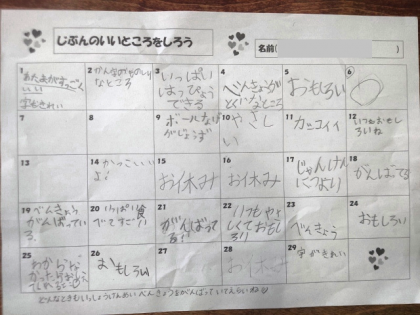 じぶんのいいところをしろう
名前(
)
1
あたまがすっごく
いい
字もきれい
2
なところ
3
いっぱい
はっぴょう
できる
4
べんきょうが
とくいなところ
5
おもしろい
6
7
8
9
ボールなげ
がじょうず
10
やさし
い
11
カッコイイ
12
いつもおもし
ろいね
13
14
かっこいい
よ!
15
お休み
16
お休み
17
じゃんけん
につよい
18
がんばってる
19
べんきょう
がんばってい
る
20
いっぱい食
べてすごい
21
がんばって
る!
22
いつもやさ
しくておもし
ろい
23
べんきょう
24
おもしろい
25
わからな
かったら
26
おもしろい
27
28
お休み
29
字がきれい
どんなときもいっしょうけんめいべんきょうをがんばっていてえらいね